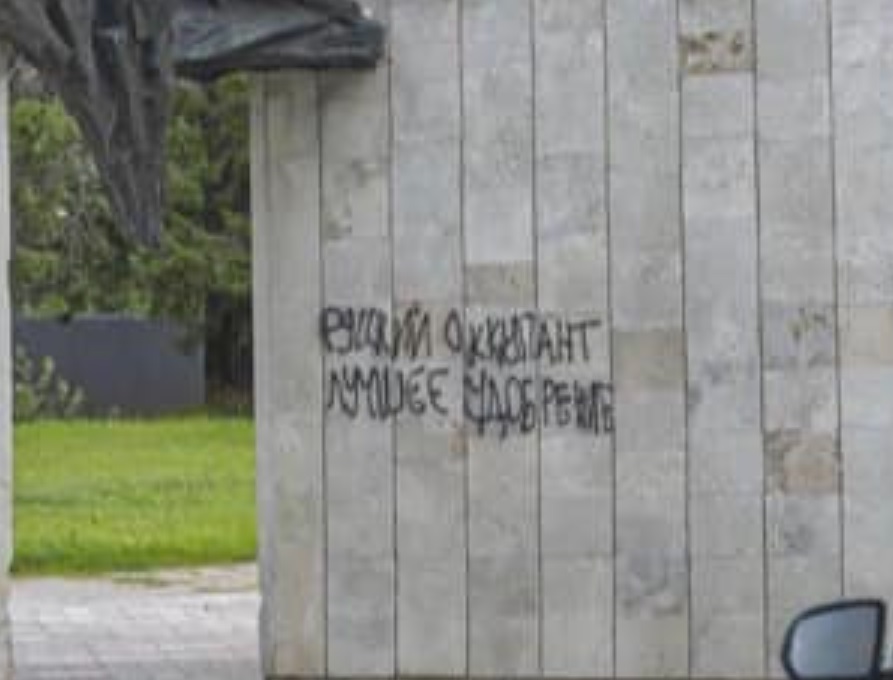 РУССКИЙ ОККУПАНТ
ЛУЧШЕЕ УДОБРЕНИЕ